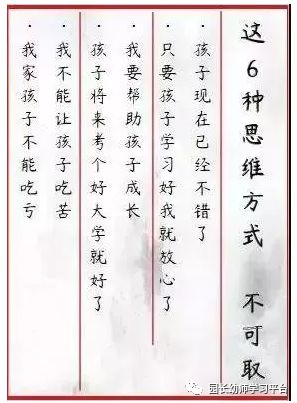 这6种思维方式 不可取
·孩子现在已经不错了
·只要孩子学习好我就放心了
·我要帮助孩子成长
·孩子将来考个好大学就好了
·我不能让孩子吃苦
·我家孩子不能吃亏
园长幼师学习平台